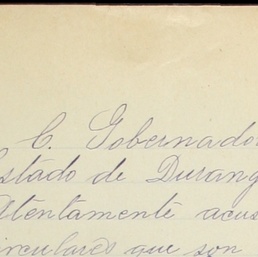 C. Gobernador
Estado de Durang
Atentamente acus
circulares que son